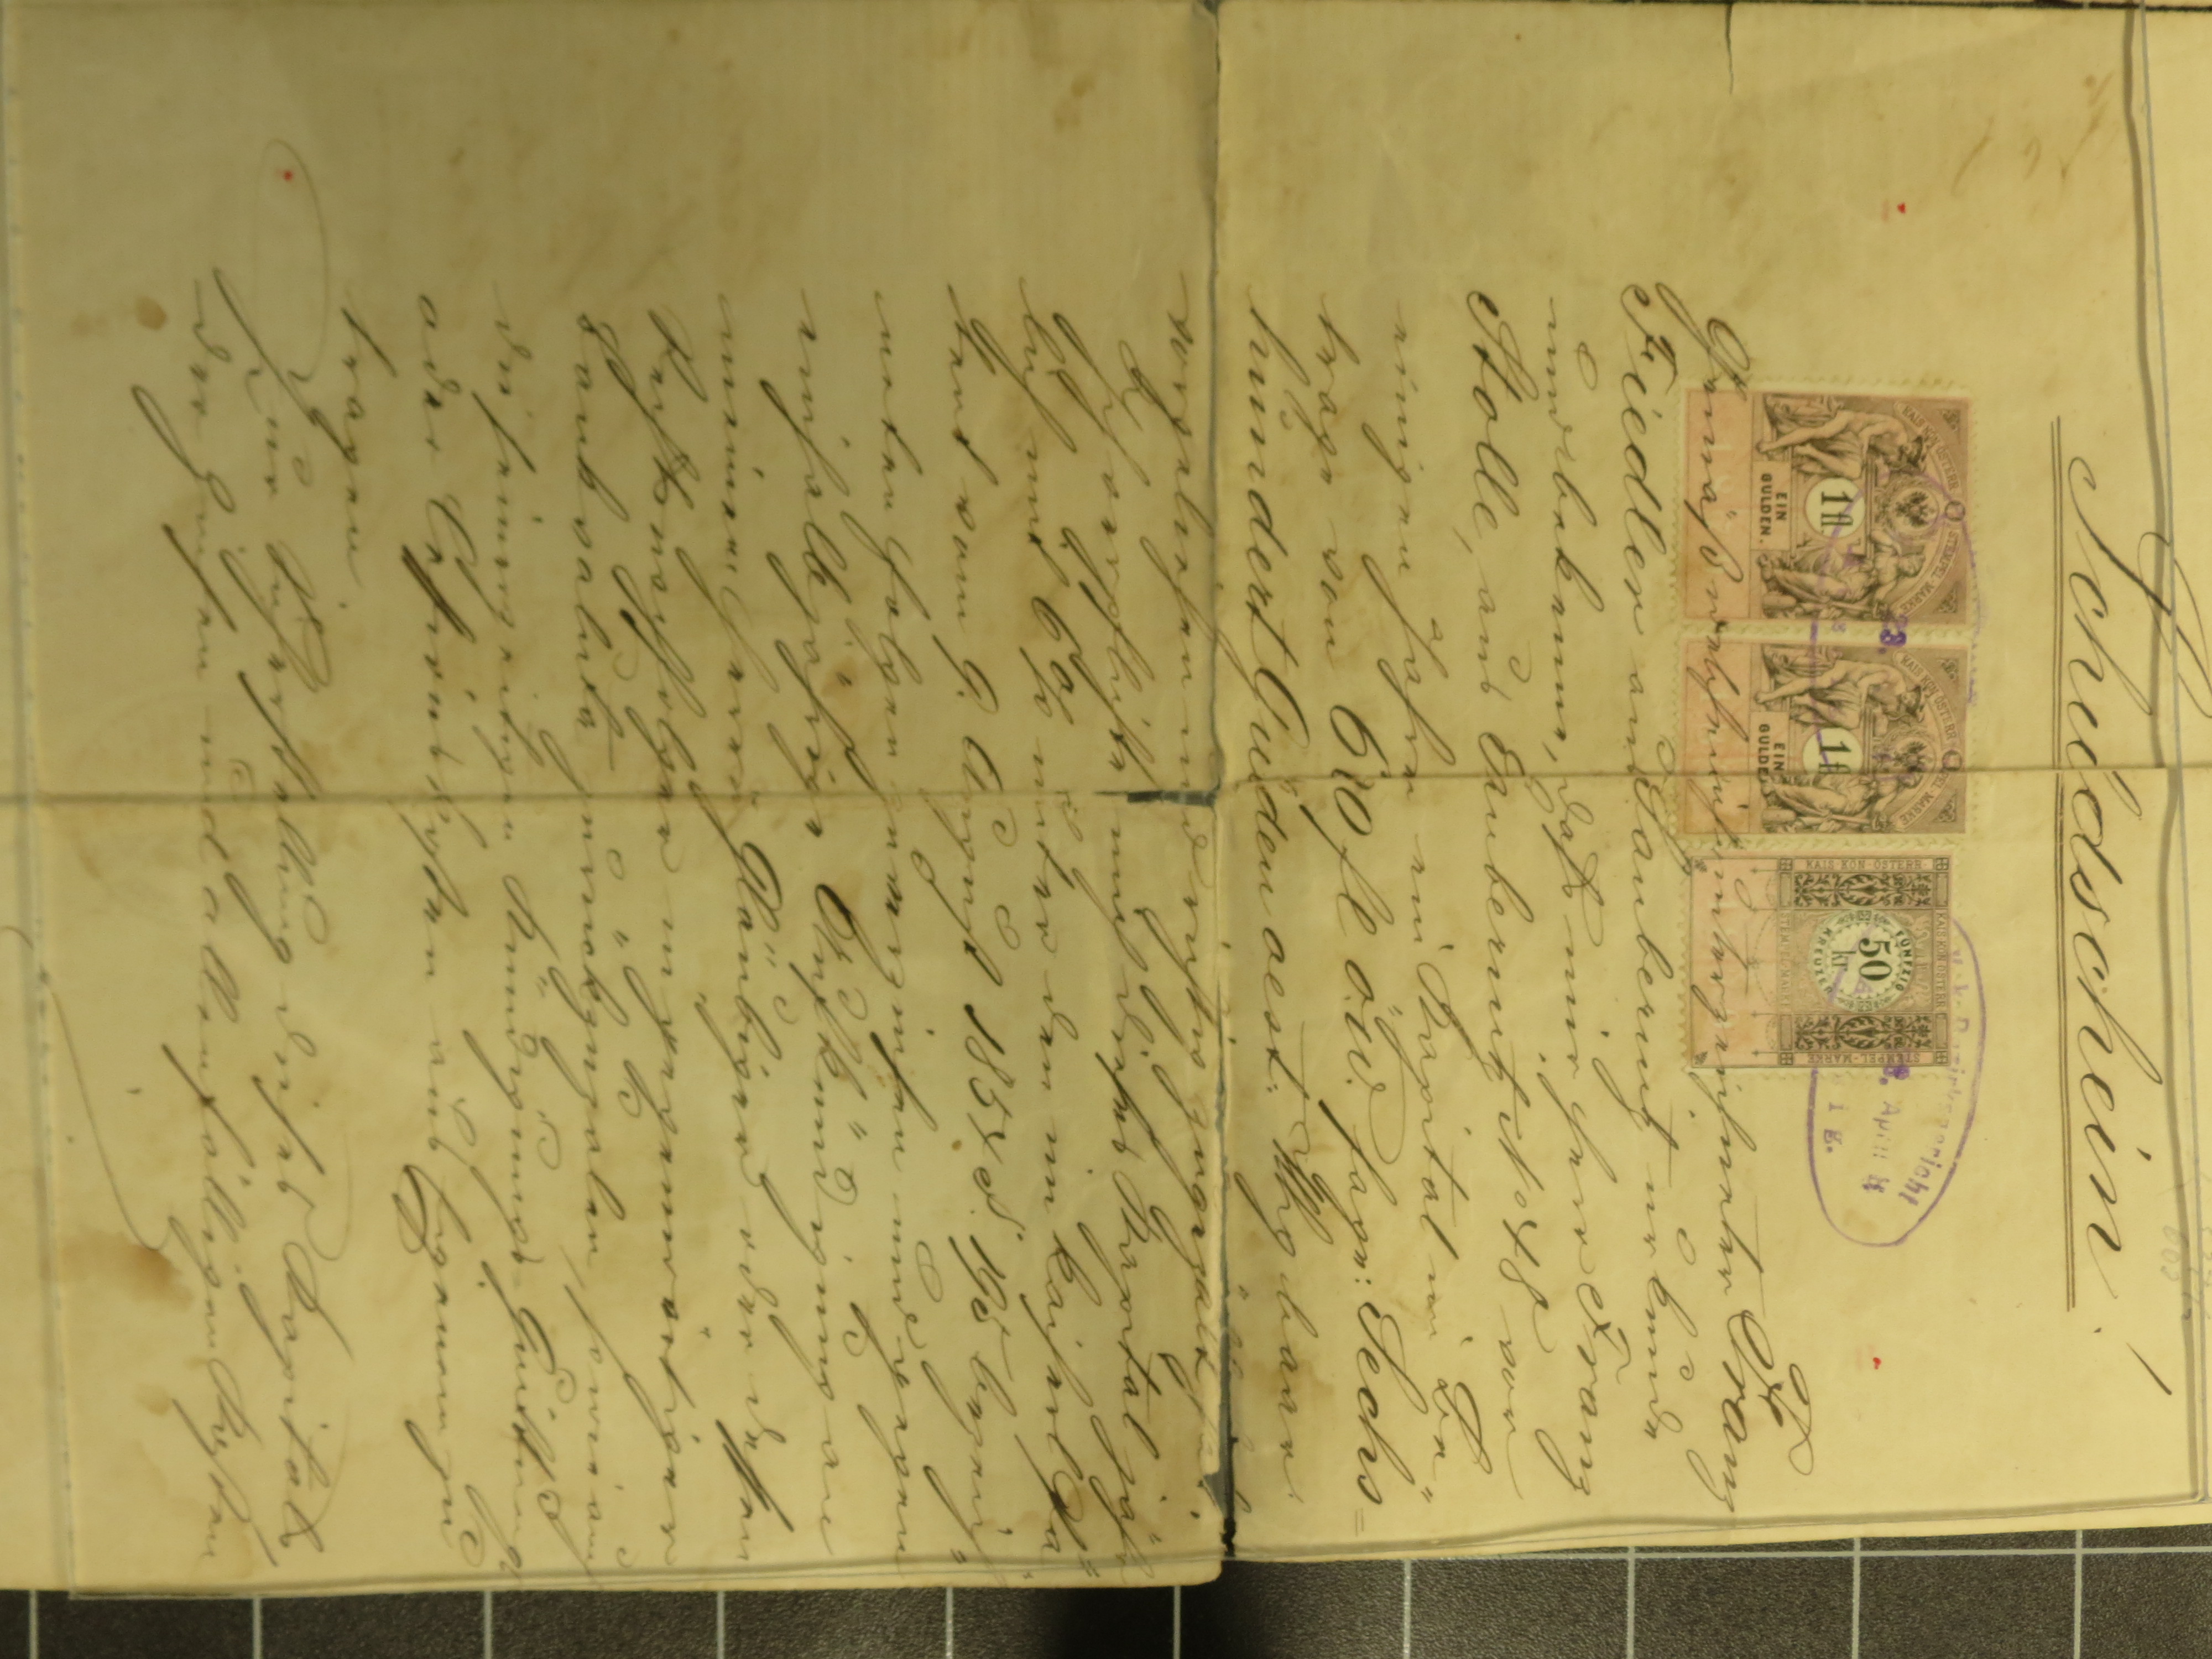 Schuldschein!
KAIS. KÖN. ÖSTERR. STEMPEL-MARKE
1 fl
EIN
GULDEN.
KAIS. KÖN. ÖSTERR. STEMPEL-MARKE
1 fl
EIN
GULDE
KAIS. KÖN. ÖSTERR.
FÜNFZIG
50
kr
KREUZER
STEMPEL-MARKE
k. k. Bezirksgericht
23. April
Gemäß welchem ich unterzeichneter Franz
Fiedler aus Saubernitz urkunde
und bekenne, daß mir Herr Franz
Stolle, aus Saubernitz No 48 vor
einigen Jahren ein Kapital im Be„
trage von 600 fl ö.W. sage: Sechs=
hundert Gulden oest. Whg baar
vorgeliehen und richtig zugezält hat.
Ich verpflichte mich dieses Kapital jähr„
lich mit 6% unter den im kaiserl Pa„
tent vom 9. August 1854 §. 195 bezeich„
neten Folgen zu verzinsen und gegen
einhalbjährige Aufkündigung an
meinen Herrn Gläubiger oder dessen
Rechtsnachfolger in gegenwärtiger
Bankvaluta zurückzuzalen, sowie auch
die seinerzeitigen Kündigungs- Quittungs
oder Cessionskosten aus Eigenem zu
tragen.
Zur Sicherstellung dieses Kapitals,
der Zinsen und allenfälligen Kosten